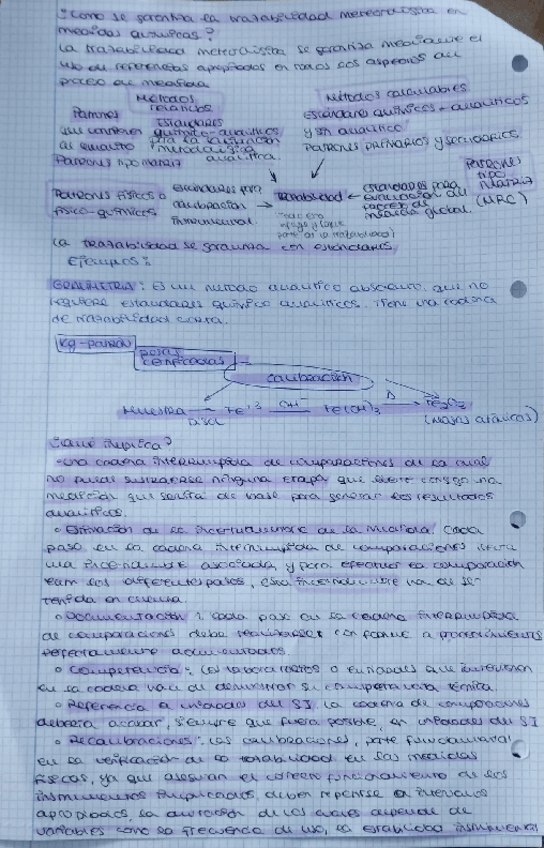 ¿Cómo se garantiza la trazabilidad metrológica en
medidas químicas?
La trazabilidad metrológica se garantiza mediante el
uso de referencias apropiadas en todos los aspectos del
proceso de medida
Métodos relativos
Métodos calculables
Patrones
Estándares
químico-analíticos
analítica.
Patrones tipo matriz
Estándares químicos - analíticos
y sin analítico
Patrones primarios y secundarios
Patrones físicos o
físico-químicos
Estándares para
calibración
instrumental
Trazabilidad
Estándares para
evaluación del
sesgo global. (MRC)
Patrones
tipo
matriz
La trazabilidad se garantiza con estándares
Ejemplos:
GRAVIMETRÍA: Es un método analítico absoluto, que no
requiere estándares químico analíticos. Tiene una cadena
de trazabilidad corta.
Kg-patrón
pesas
certificadas
calibración
Muestra → Fe+3 OH⁻ Fe(OH)3 Δ Fe2O3
disol (masas atómicas)
¿Qué implica?
-Una cadena interrumpida de comparaciones de la cual
no puede sustraerse ninguna etapa que lleve consigo una
medición que servirá de base para generar los resultados
analíticos.
• Estimación de la incertidumbre de la medida. Cada
paso en la cadena interrumpida de comparaciones lleva
una incertidumbre asociada, y para efectuar la comparación
los diferentes pasos, esta incertidumbre ha de ser
tenida en cuenta.
• Documentación: cada paso en la cadena interrumpida
de comparaciones debe realizarse conforme a procedimientos
perfectamente documentados.
• Competencia: los laboratorios o entidades que intervienen
en la cadena van a demostrar su competencia técnica.
• Referencia a unidades del SI. La cadena de comparaciones
debería acabar, siempre que fuera posible, en unidades del SI
• Recalibraciones: las calibraciones, parte fundamental
en la verificación de la trazabilidad en las medidas
físicas, ya que aseguran el correcto funcionamiento de los
instrumentos implicados, deben repetirse a intervalos
apropiados, la duración de los cuales depende de
variables como la frecuencia de uso, la estabilidad instrumental